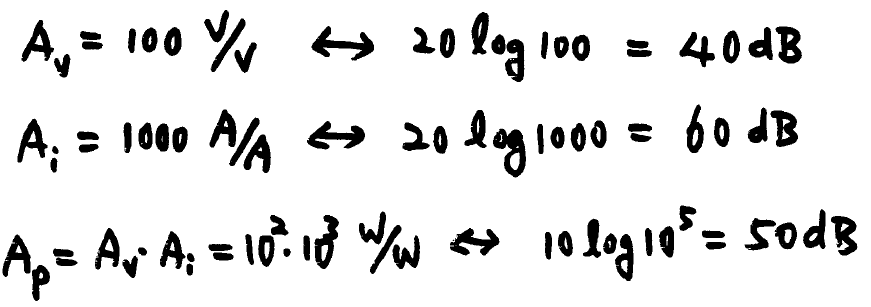 A_v = 100 V/V ↔ 20 log 100 = 40 dB
A_i = 1000 A/A ↔ 20 log 1000 = 60 dB
A_p = A_v · A_i = 10² · 10³ W/W ↔ 10 log 10⁵ = 50 dB